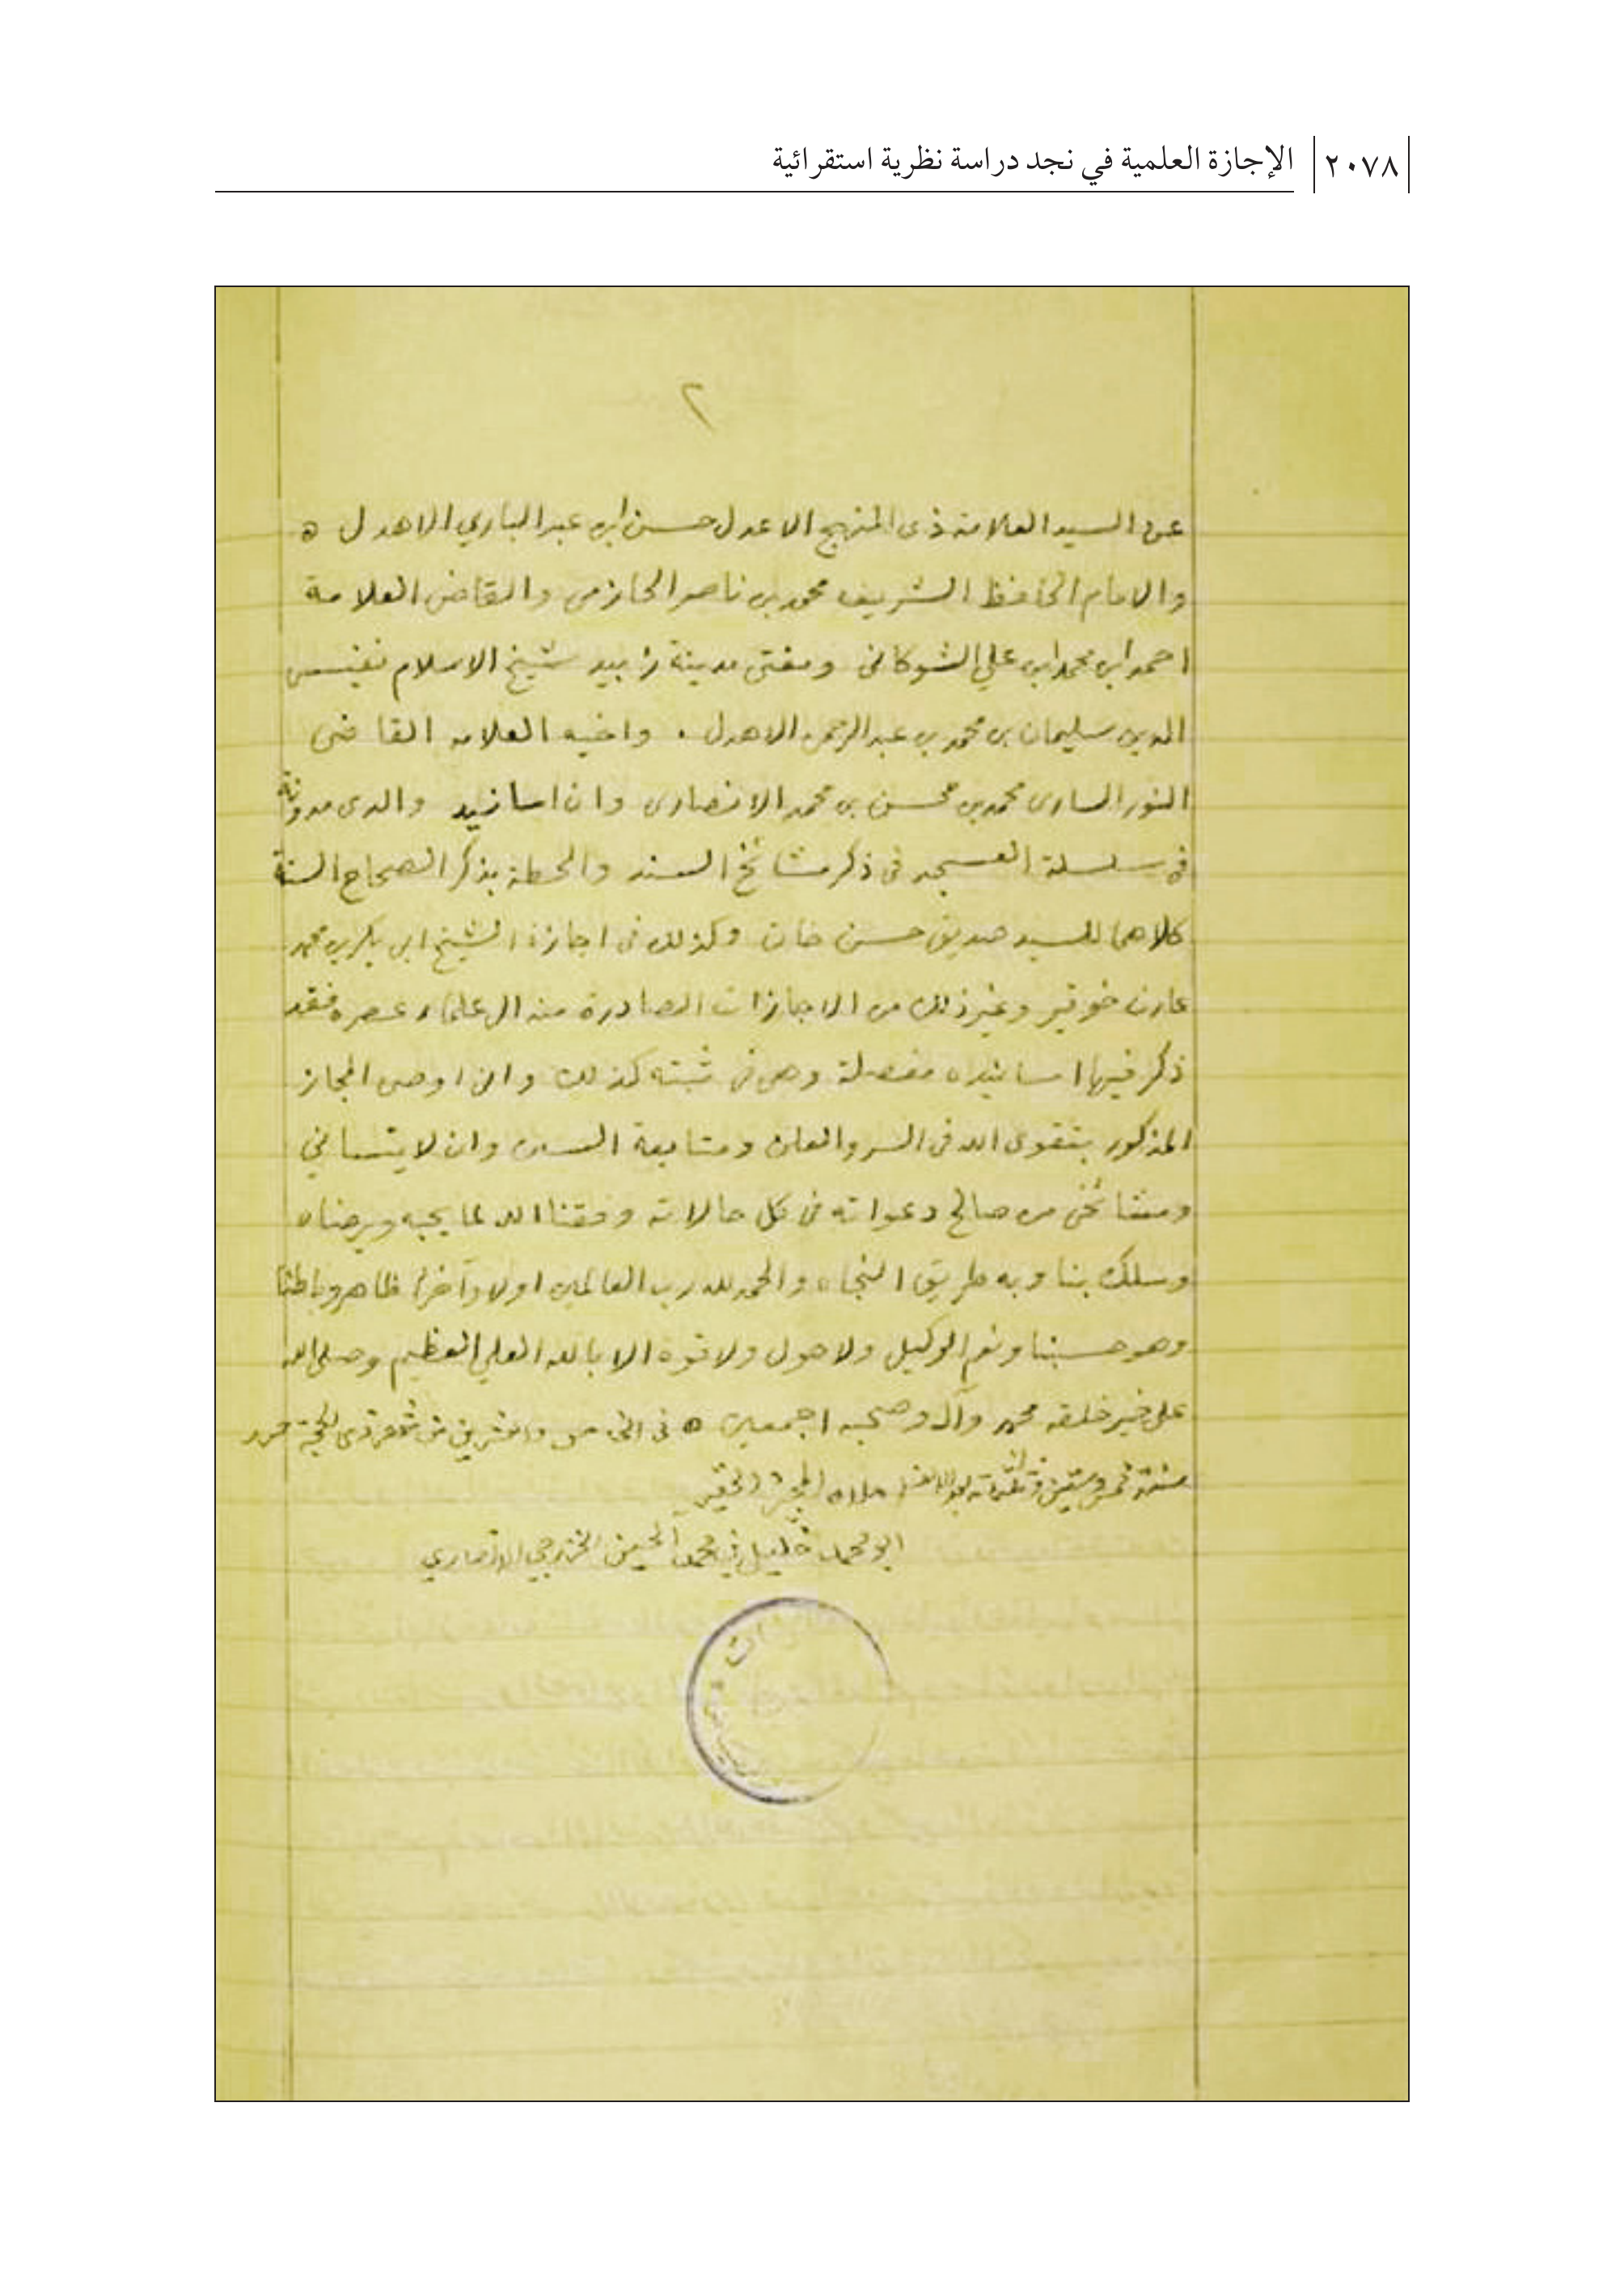 ٢٠٧٨ الإجازة العلمية في نجد دراسة نظرية استقرائية
٢
عن السيد العلامة ذى المنهج الاعدل حسن ابن عبد الباري الاهدل ه
والامام الحافظ الشريف محمد بن ناصر الحازمي والقاضى العلامة
احمد ابن محمد ابن علي الشوكانى ومفتى مدينة زبيد شيخ الاسلام نفيس
الدين سليمان بن محمد بن عبد الرحمن الاهدل . واخيه العلامه القاضى
النور السارى محمد بن محسن بن محمد الانصارى وان اسانيد والدى مدونة
فى سلسلة العسجد فى ذكر مشائخ السند والحطة بذكر الصحاح الستة
كلاهما للسيد صديق حسن خان وكذلك فى اجازة الشيخ ابى بكر بن محمد
عارف خوقير وغير ذلك من الاجازات الصادرة منه الى علماء عصره فقد
ذكر فيها اسانيده مفصلة وهى فى ثبته كذلك وانى اوصى المجاز
المذكور بتقوى الله فى السر والعلن ومتابعة السنن وان لا ينسانى
ومشائخى من صالح دعواته فى كل حالاته وفقنا الله لما يحبه ويرضاه
وسلك بنا وبه طريق النجاه والحمد لله رب العالمين اولا وآخرا ظاهر وباطنا
وهو حسبنا ونعم الوكيل ولا حول ولا قوة الا بالله العلي العظيم وصلى الله
على خير خلقه محمد وآله وصحبه اجمعين ه فى الخامس والعشرين من شهر ذى الحجة حرر
سنة خمس وستين وثلثمائة بعد الالف املاه المجيز الحقير
ابو محمد خليل بن محمد الحسين الخزرجي الانصاري